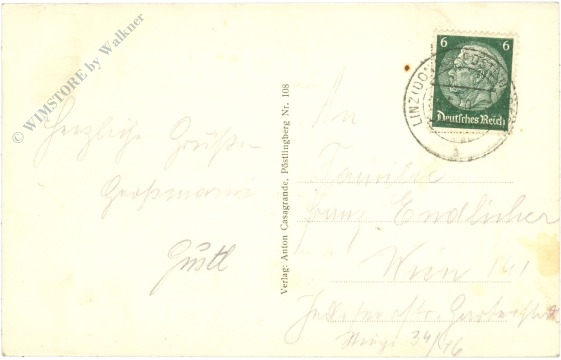 © WIMSTORE by Walkner
Herzliche Grüße
Großmann
Gustl
Verlag: Anton Casagrande, Pöstlingberg Nr. 108
6 6
Deutsches Reich
LINZ (DO
An
Familie
Franz Endlicher
Wien
34/16